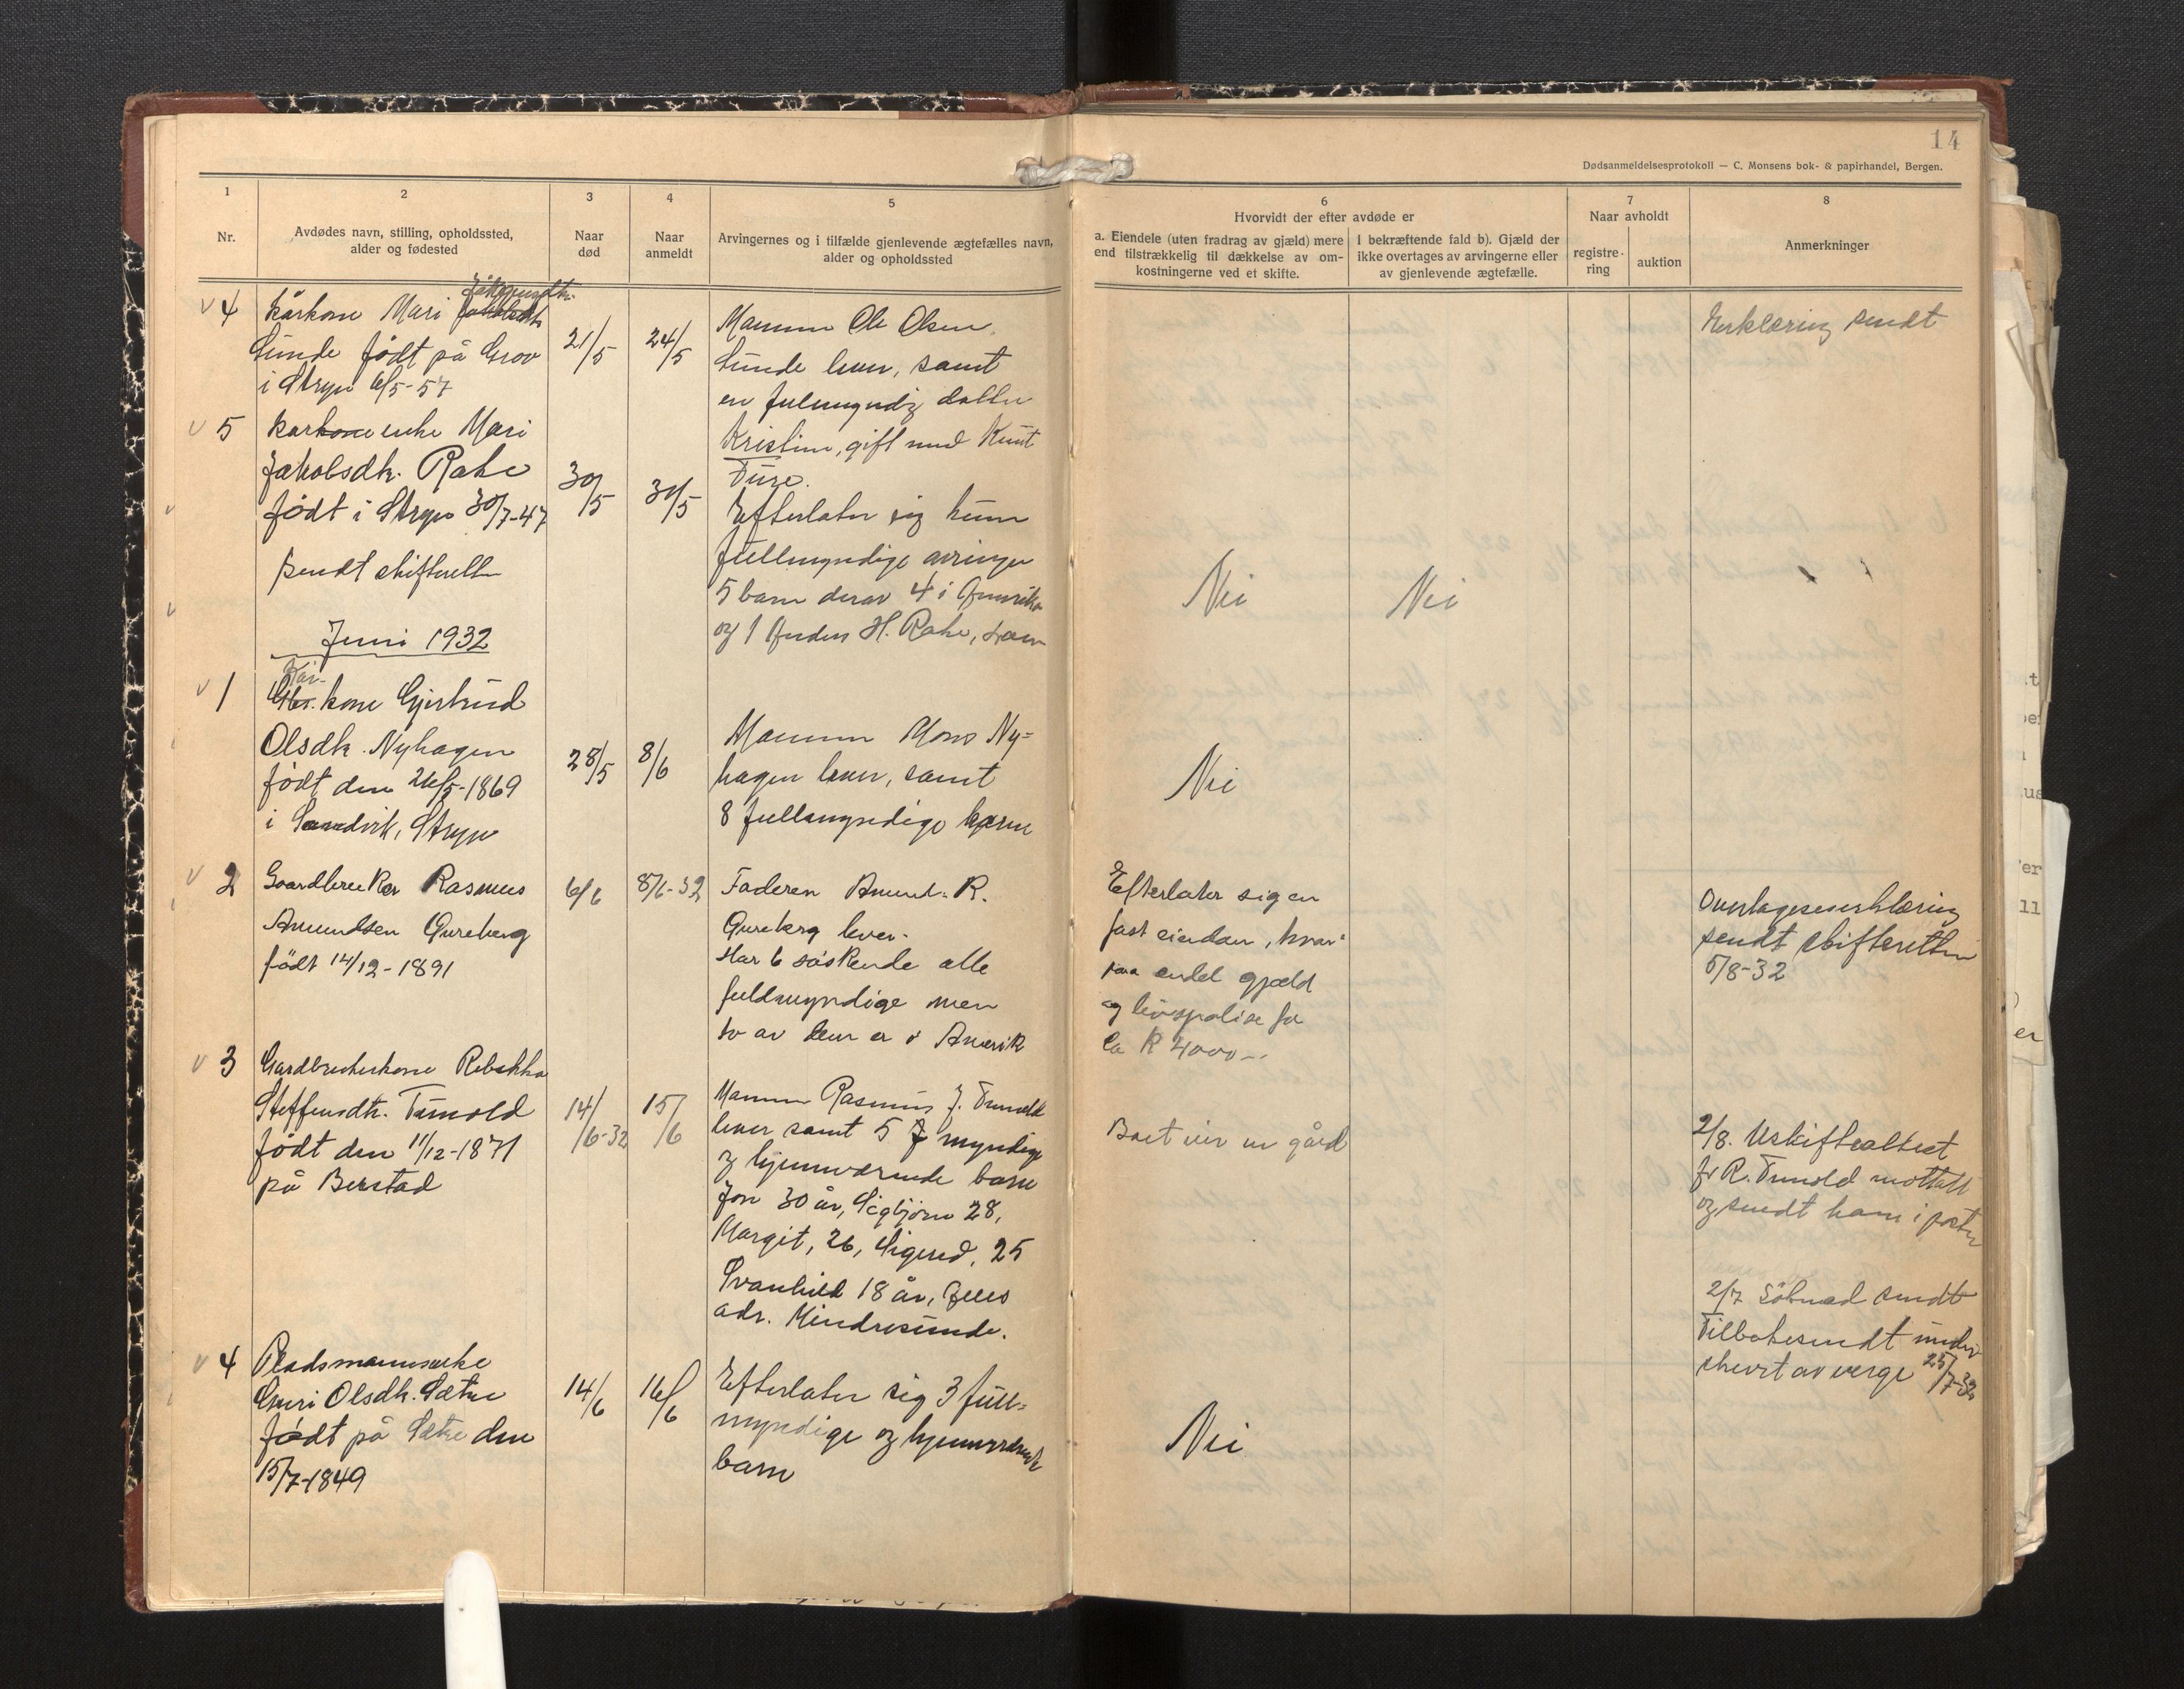 14
Dødsanmeldelsesprotokoll — C. Monsens bok- & papirhandel, Bergen.
1
Nr.
2
Avdødes navn, stilling, opholdssted,
alder og fødested
3
Naar
død
4
Naar
anmeldt
5
Arvingernes og i tilfælde gjenlevende ægtefælles navn,
alder og opholdssted
6
Hvorvidt der efter avdøde er
a. Eiendele (uten fradrag av gjæld) mere
end tilstrækkelig til dækkelse av om-
kostningerne ved et skifte.
I bekræftende fald b). Gjæld der
ikke overtages av arvingerne eller
av gjenlevende ægtefælle.
7
Naar avholdt
registre-
ring
auktion
8
Anmerkninger
4
kårkone Mari
Sunde født på Grov
i Stryn 6/5-57
21/5
24/5
Mannen Ole Olsen
Sunde lever, samt
en fulmyndig datter
Kristine, gift med Knut
Erklæring sendt
5
kårkone enke Mari
Jakobsdtr. Rake
født i Stryn 30/7-47
sendt skifteretten
30/5
31/5
Efterlater sig kun
fullmyndige arvinger
5 barn derav 4 i Amerika
og 1 Anders H. Rake,
Nei
Nei
Juni 1932
1
Kår-
kone Gjertrud
Olsdtr. Nyhagen
født den 26/5-1869
i Sandvik, Stryn
28/5
8/6
Mannen Mons Ny-
hagen lever, samt
8 fullmyndige barn
Nei
2
Gaardbruker Rasmus
Amundsen Qureberg
født 14/12-1891
6/6
8/6-32
Faderen Amund R.
Qureberg lever.
Har 6 søskende alle
fuldmyndige men
to av dem er i Amerik
Efterlater sig en
fast eiendom, hvor
paa endel gjæld
og livspolise for
ca K 4000--
Overtageseserklæring
sendt skifteretten
5/8-32
3
Gardbrukerkone Rebekka
Steffensdtr. Tunold
født den 11/12-1871
på Berstad
14/6-32
15/6
Mannen Rasmus J. Tunold
lever samt 5 myndige
og hjemværende barn
Jon 30 år, Sigbjørn 28,
Margit, 26, Sigurd, 25
Svanhild 18 år, Alles
adr. Hindresunde.
Boet eier en gård
2/8. Uskifteattest
fr R. Tunold mottatt
og sendt ham i posten
2/7 Søknad sendt
Tilbakesendt under
skrevt av verge 25/7-32
4
Pladsmannsenke
Guri Olsdtr. Sætre
født på Sætre den
15/7-1849
14/6
16/6
Efterlater sig 3 full-
myndige og hjemværende
barn
Nei